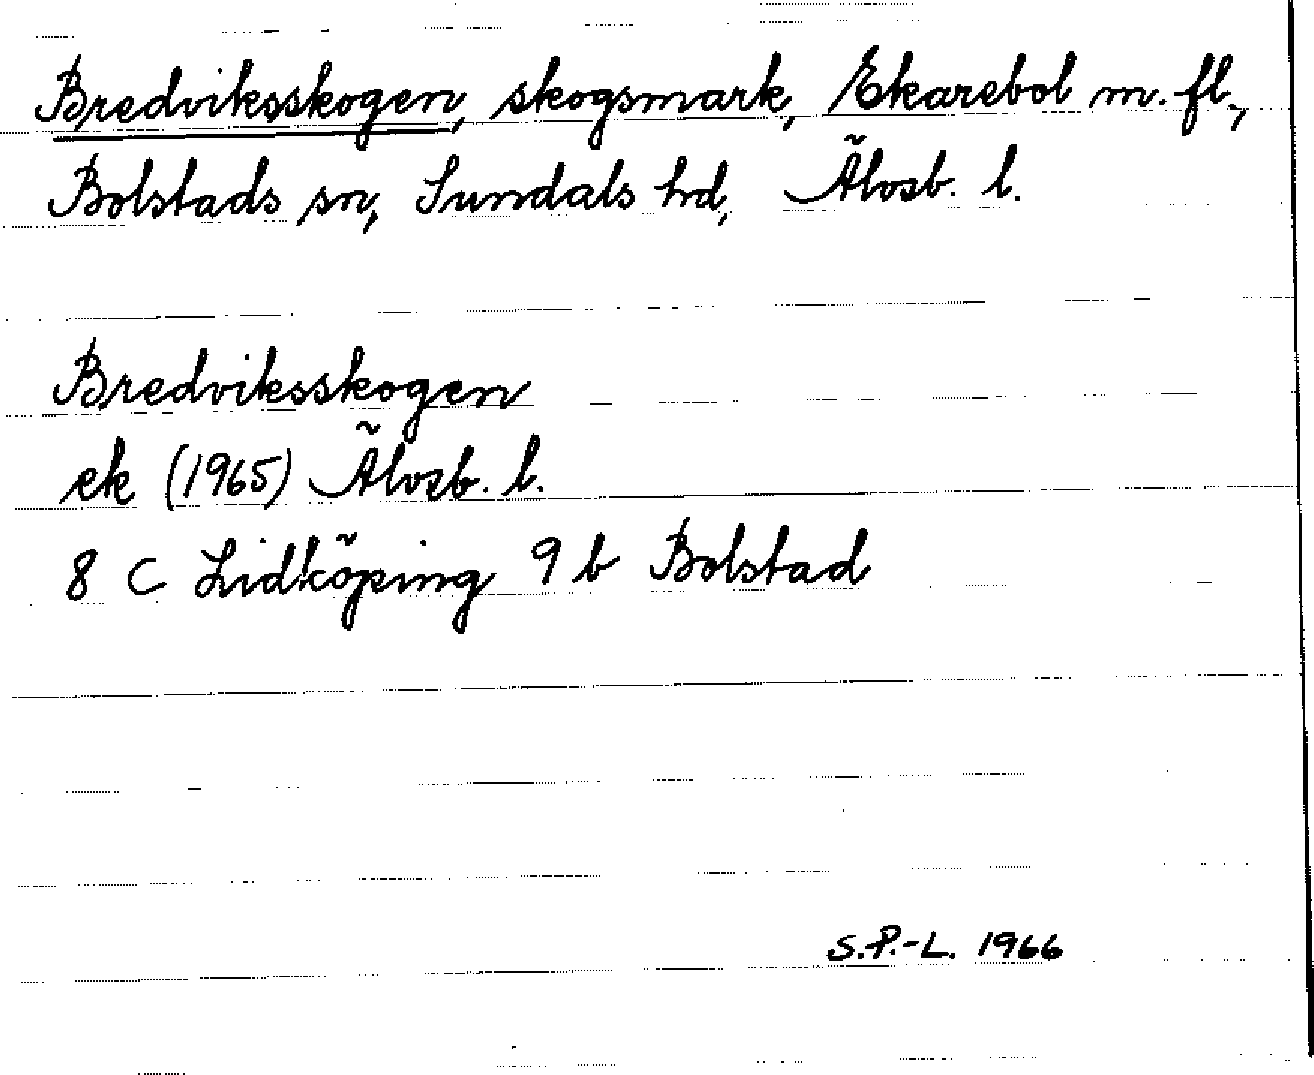 Bredviksskogen, skogsmark, Ekarebol m. fl.,
Bolstads sn, Sundals hd, Älvsb. l.
Bredviksskogen
ek (1965) Älvsb. l.
8 C Lidköping 9 b Bolstad
S.P.-L. 1966